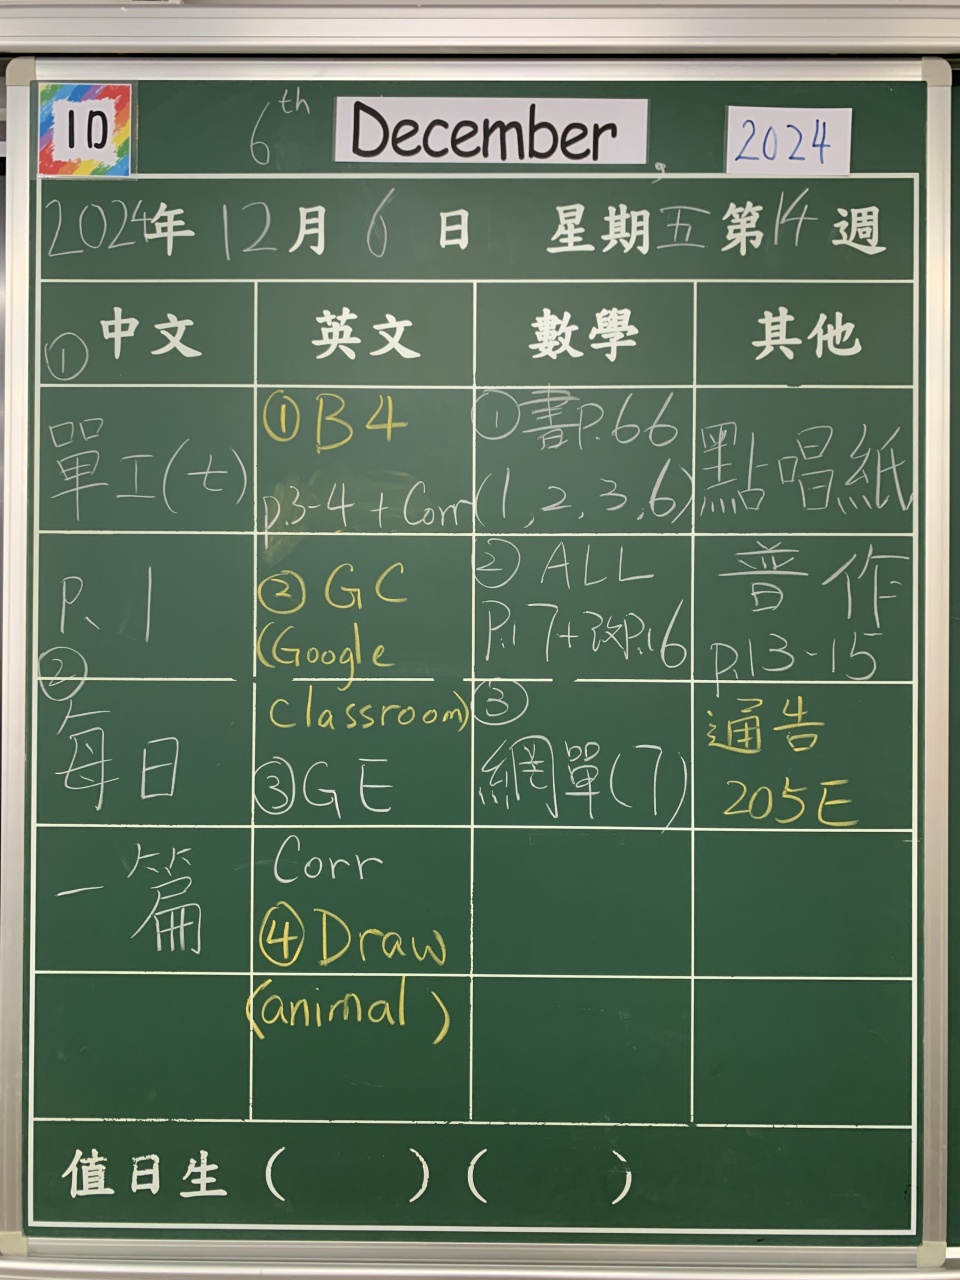 1D
6th December, 2024
2024年 12月 6日 星期五 第14週
中文 英文 數學 其他
①
單工(七)
P.1
②
每日
一篇
① B4
p.3-4 + Corr
② GC
(Google
Classroom)
③ GE
Corr
④ Draw
(animal)
① 書P.66
(1,2,3,6)
② ALL
P.17+改P.16
③
網單(7)
點唱紙
普作
p.13-15
通告
205E
值日生 ( ) ( )